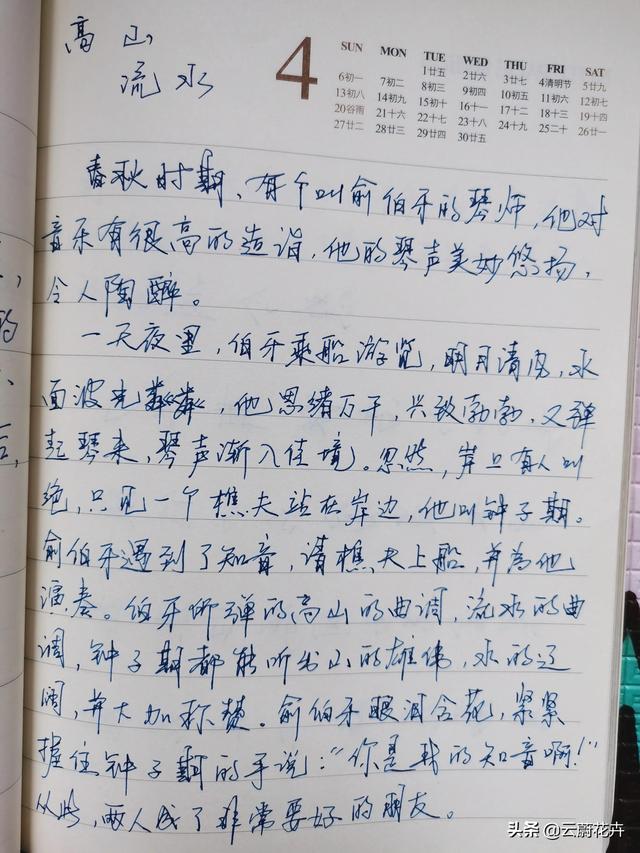 高山
流水
4
SUN MON TUE WED THU FRI SAT
1廿五 2廿六 3廿七 4清明节 5廿九
6初一 7初二 8初三 9初四 10初五 11初六 12初七
13初八 14初九 15初十 16十一 17十二 18十三 19十四
20谷雨 21十六 22十七 23十八 24十九 25二十 26廿一
27廿二 28廿三 29廿四 30廿五
春秋时期，有个叫俞伯牙的琴师，他对
音乐有很高的造诣，他的琴声美妙悠扬，
令人陶醉。
一天夜里，伯牙乘船游览，明月清风，水
面波光粼粼，他思绪万千，兴致勃勃，又弹
起琴来，琴声渐入佳境。忽然，岸上有人叫
绝，只见一个樵夫站在岸边，他叫钟子期。
俞伯牙遇到了知音，请樵夫上船，并为他
演奏。伯牙所弹的高山的曲调，流水的曲
调，钟子期都能听出山的雄伟，水的辽
阔，并大加称赞。俞伯牙眼泪含花，紧紧
握住钟子期的手说：“你是我的知音啊！”
从此，两人成了非常要好的朋友。
头条 @云蔚花卉